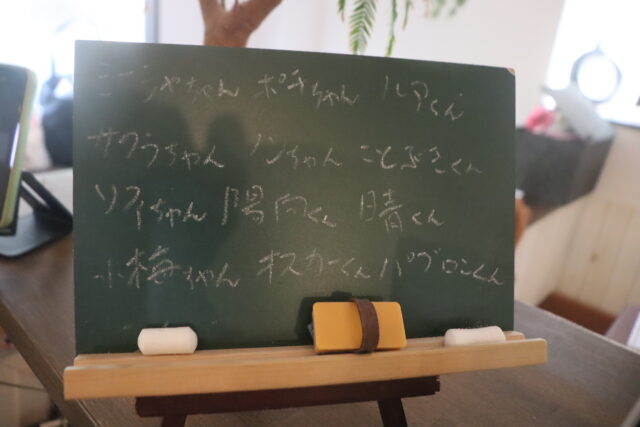 ミニシャちゃん ポチちゃん ルアくん
サクラちゃん ノンちゃん ことぶきくん
ソフィちゃん 陽向くん 晴くん
小梅ちゃん オスカーくん パブロンくん